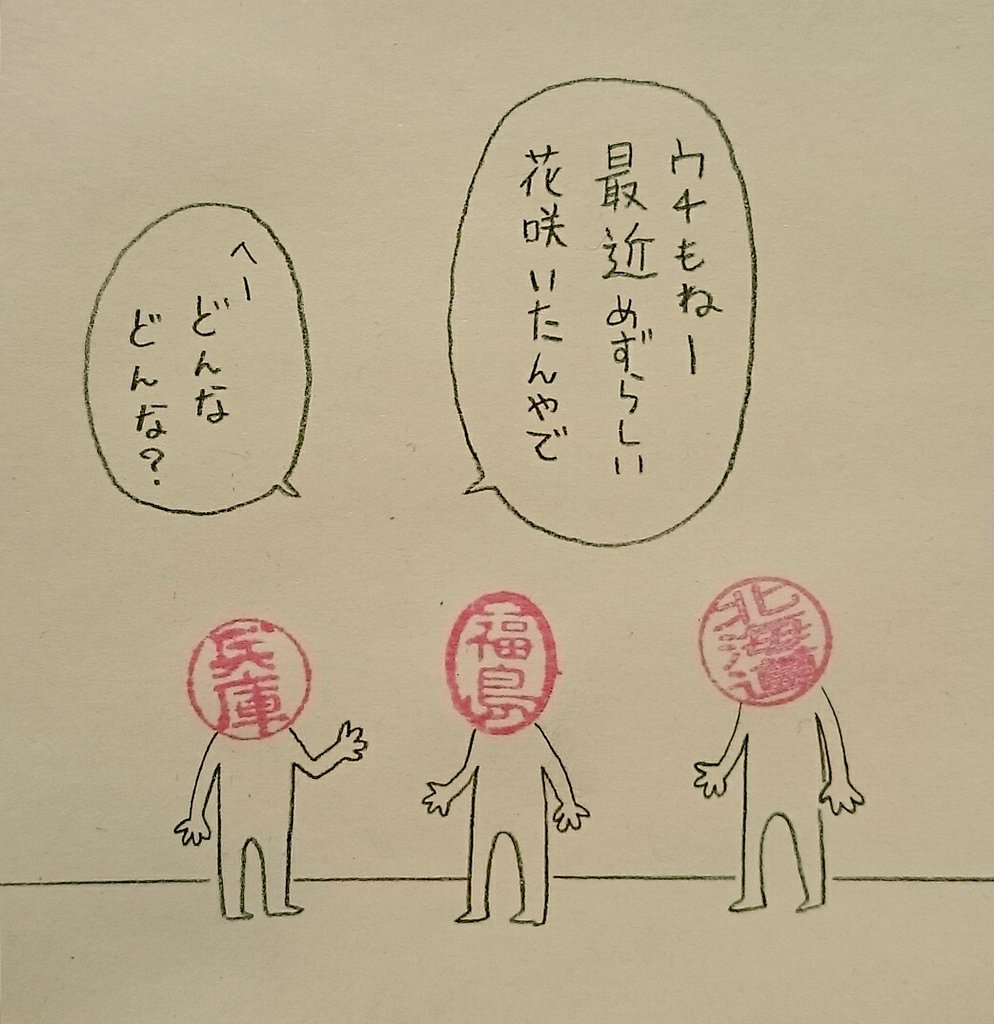 ウチもねー
最近めずらしい
花咲いたんやで
へー
どんな
どんな?
北海道
福島
兵庫